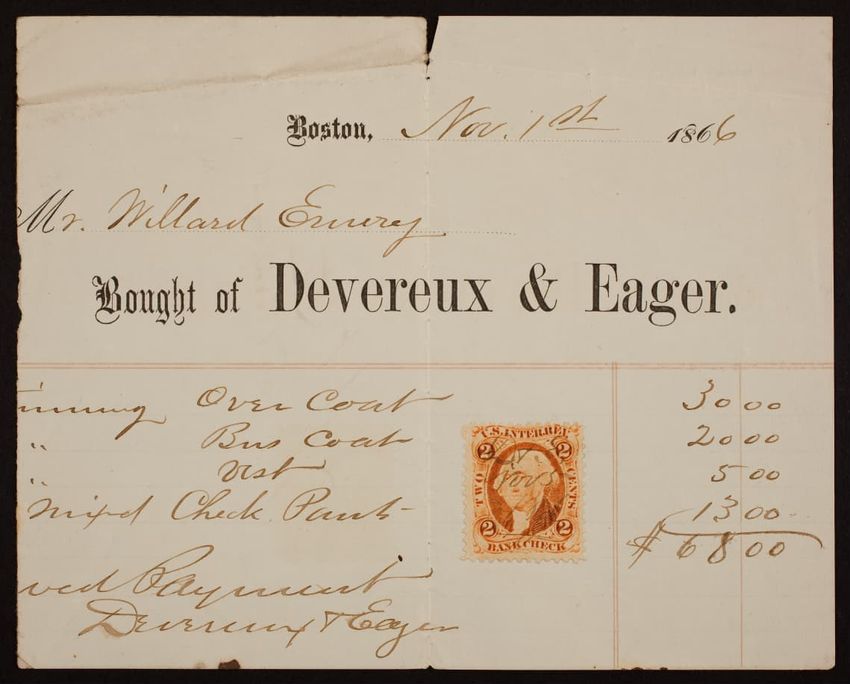 Boston, Nov. 1st 1866
Mr. Willard Emery
Bought of Devereux & Eager.
Over Coat 30 00
" Bus Coat 20 00
" Vest 5 00
Mixd Check Pants 13 00
$ 68 00
U.S. INTER. REV.
2 2
TWO CENTS
Nov
2 2
BANK CHECK
ved Payment
Devereux & Eager